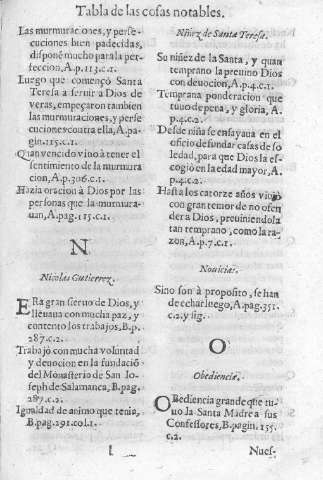 Tabla de las cosas notables.
Las murmuraciones, y perse-
cuciones bien padecidas,
disponē mucho para la per-
feccion, A.p. 113.c.1.
Luego que començò Santa
Teresa a seruir a Dios de
veras, empeçaron tambien
las murmuraciones, y perse
cuciones contra ella, A.pa-
gin.115.c.1.
Quan vencido vino à tener el
sentimiento de la murmura
cion, A.p.306.c.1.
Hazia oracion à Dios por las
personas que la murmura-
uan, A.pag.115.c.1.
N
Nicolas Gutierrez.
ERa gran sieruo de Dios, y
lleuaua con mucha paz, y
contento los trabajos, B.p.
287.c.2.
Trabajò con mucha voluntad
y deuocion en la fundació
del Monasterio de San Io-
seph de Salamanca, B.pag.
287.c.2.
Igualdad de animo que tenia,
B.pag.291.col.1.
Niñez de Santa Teresa.
Su niñez de la Santa, y quan
temprano la preuino Dios
con deuocion, A.p.4.c.1.
Temprana ponderacion que
tuuo de pena, y gloria, A.
p.4.c.2.
Desde niña se ensayaua en el
oficio de fundar casas de so
ledad, para que Dios la es-
cogiò en la edad mayor, A.
p.4.c.2.
Hasta los catorze años viuiò
con gran temor de no ofen
der a Dios, preuiniendola
tan temprano, como la ra-
zon, A.p.7.c.1.
Nouicias.
Sino son à proposito, se han
de echar luego, A.pag.351.
c.2.y sig.
O
Obediencia.
OBediencia grande que tu-
uo la Santa Madre a sus
Confessores, B.pagin.155.
c.2.
Nues-